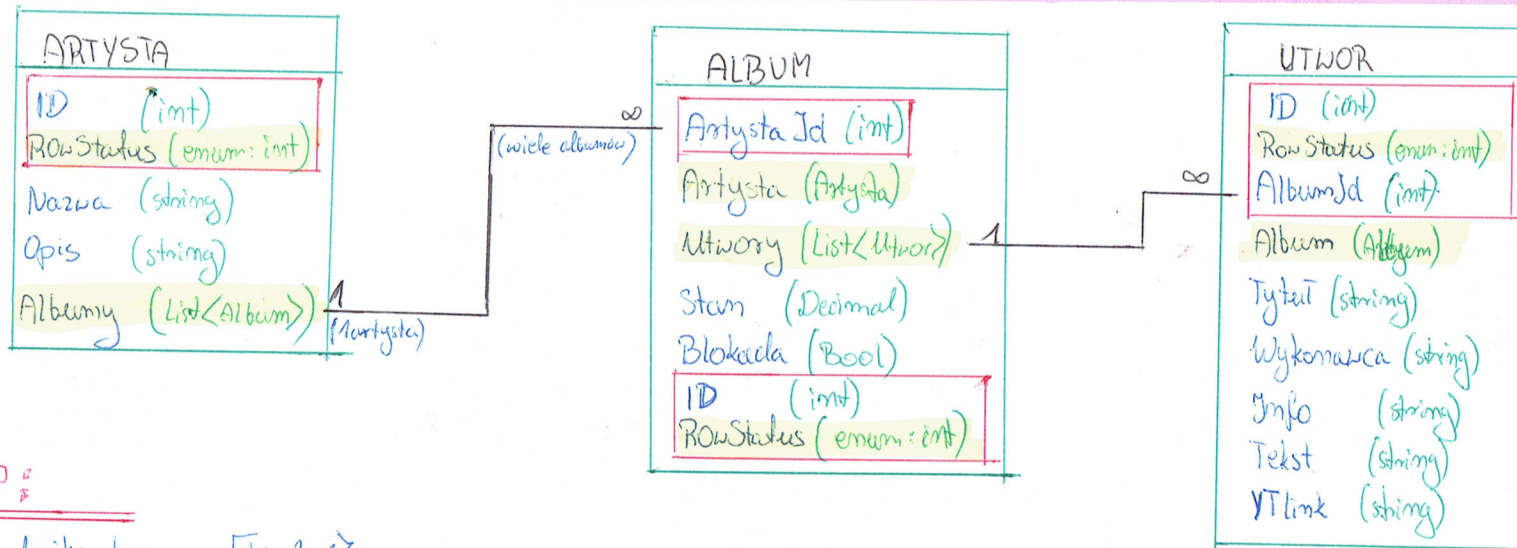 ARTYSTA
ID (int)
RowStatus (enum: int)
Nazwa (string)
Opis (string)
Albumy (List<Album>)
1
(1 artysta)
∞
(wiele albumów)
ALBUM
ArtystaId (int)
Artysta (Artysta)
Utwory (List<Utwor>)
1
Stan (Decimal)
Blokada (Bool)
ID (int)
ROwStatus (enum: int)
∞
UTWOR
ID (int)
RowStatus (enum: int)
AlbumId (int)
Album (Album)
Tytuł (string)
Wykonawca (string)
Info (string)
Tekst (string)
YTlink (string)